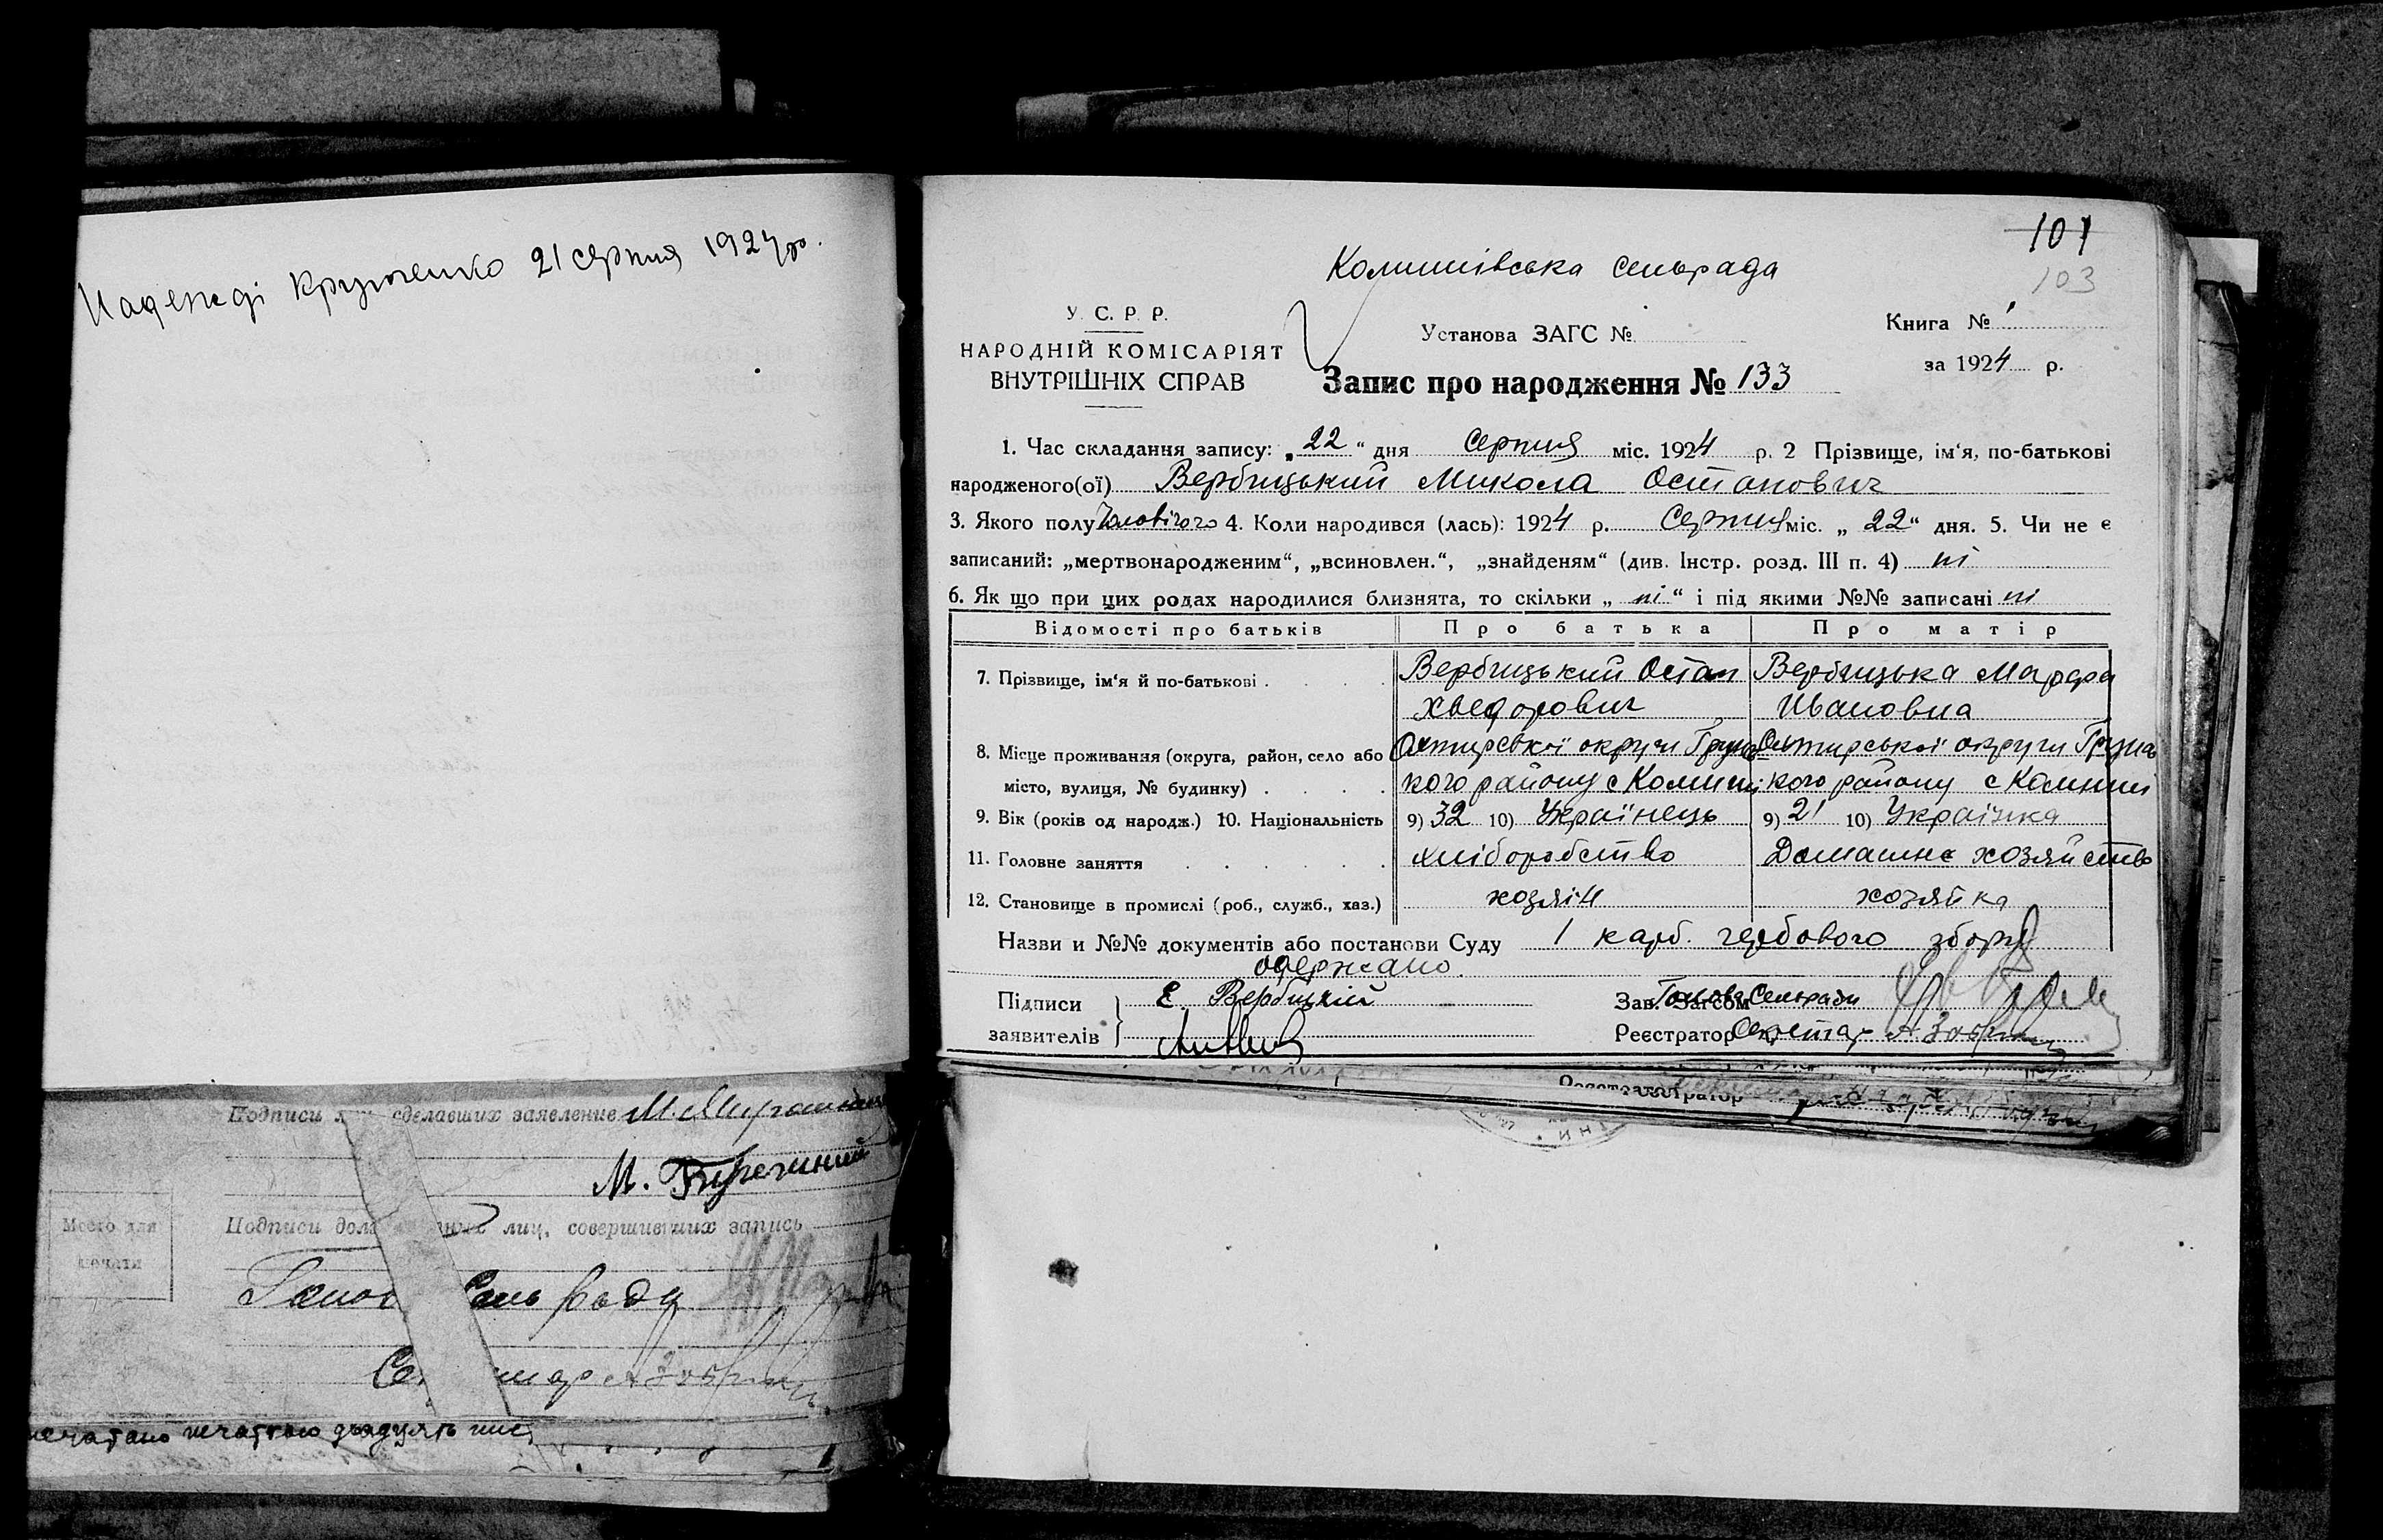 Надежді Кружченко 21 серпня 1924 р.
Подписи сделавших заявление М. Мирошн
М.
Место для
печати
Подписи лиц, совершивших запись
Голов Сель ради
печатано печаткою двадцять
101
103
Комишівська сельрада
У. С. Р. Р.
НАРОДНІЙ КОМІСАРІЯТ
ВНУТРІШНІХ СПРАВ
Установа ЗАГС №
Книга № 1
за 1924 р.
Запис про народження № 133
1. Час складання запису: „22“ дня Серпня міс. 1924 р. 2 Прізвище, ім‘я, по-батькові
народженого(ої) Вербицький Микола Остапович
3. Якого полу Чоловічого 4. Коли народився (лась): 1924 р. Серпня міс. „22“ дня. 5. Чи не є
записаний: „мертвонародженим“, „всиновлен.“, „знайденям“ (див. Інстр. розд. III п. 4) ні
6. Як що при цих родах народилися близнята, то скільки „ні“ і під якими №№ записані ні
Відомості про батьків Про батька Про матір
7. Прізвище, ім‘я й по-батькові . Вербицький Остап Вербицька Марфа
Хведорович Ивановна
8. Місце проживання (округа, район, село або Охтирської округи Грунс Охтирської округи Грунсь
місто, вулиця, № будинку) . кого району с Комиші кого району с Комиші
9. Вік (років од народж.) 10. Національність 9) 32 10) Українець 9) 21 10) Українка
11. Головне заняття хліборобство Домашнє хозяйство
12. Становище в промислі (роб., служб., хаз.) хозяін хозяйка
Назви и №№ документів або постанови Суду 1 карб. гербового збору
одержано.
Підписи Е. Вербицкій Зав. Загсом Голова Сельради
заявителів Реєстратор Секретар
Реєстратор